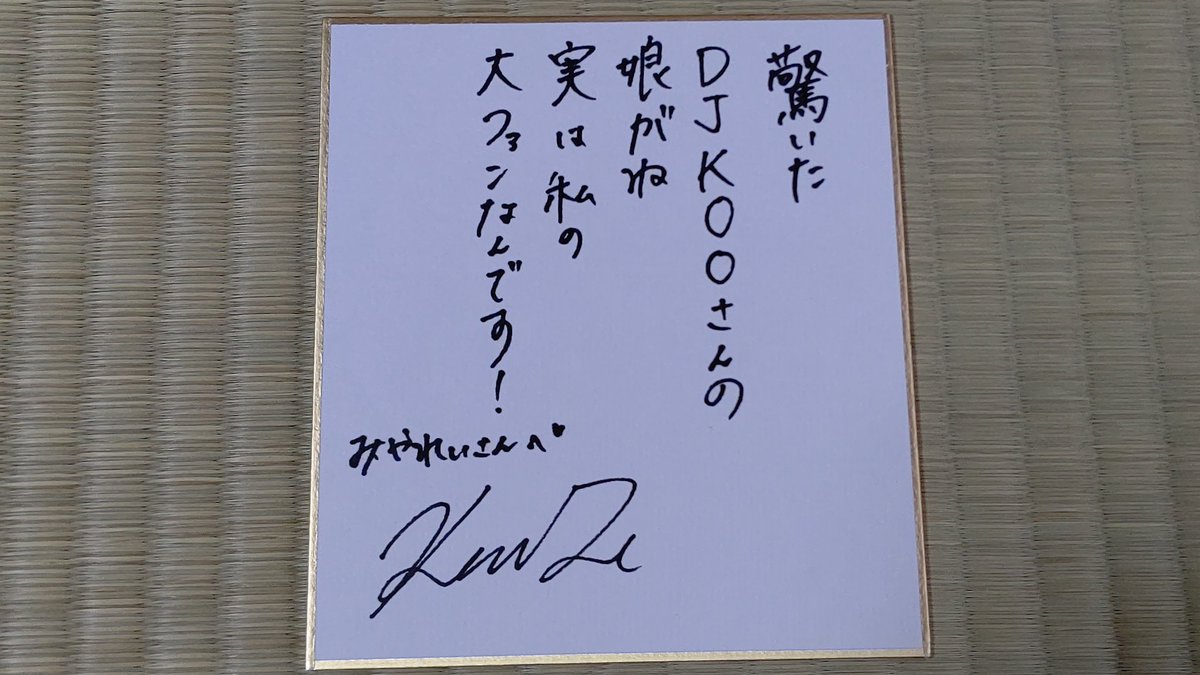 驚いた
DJ KOOさんの
娘がね
実は私の
大ファンなんです!
みやれいさんへ♥